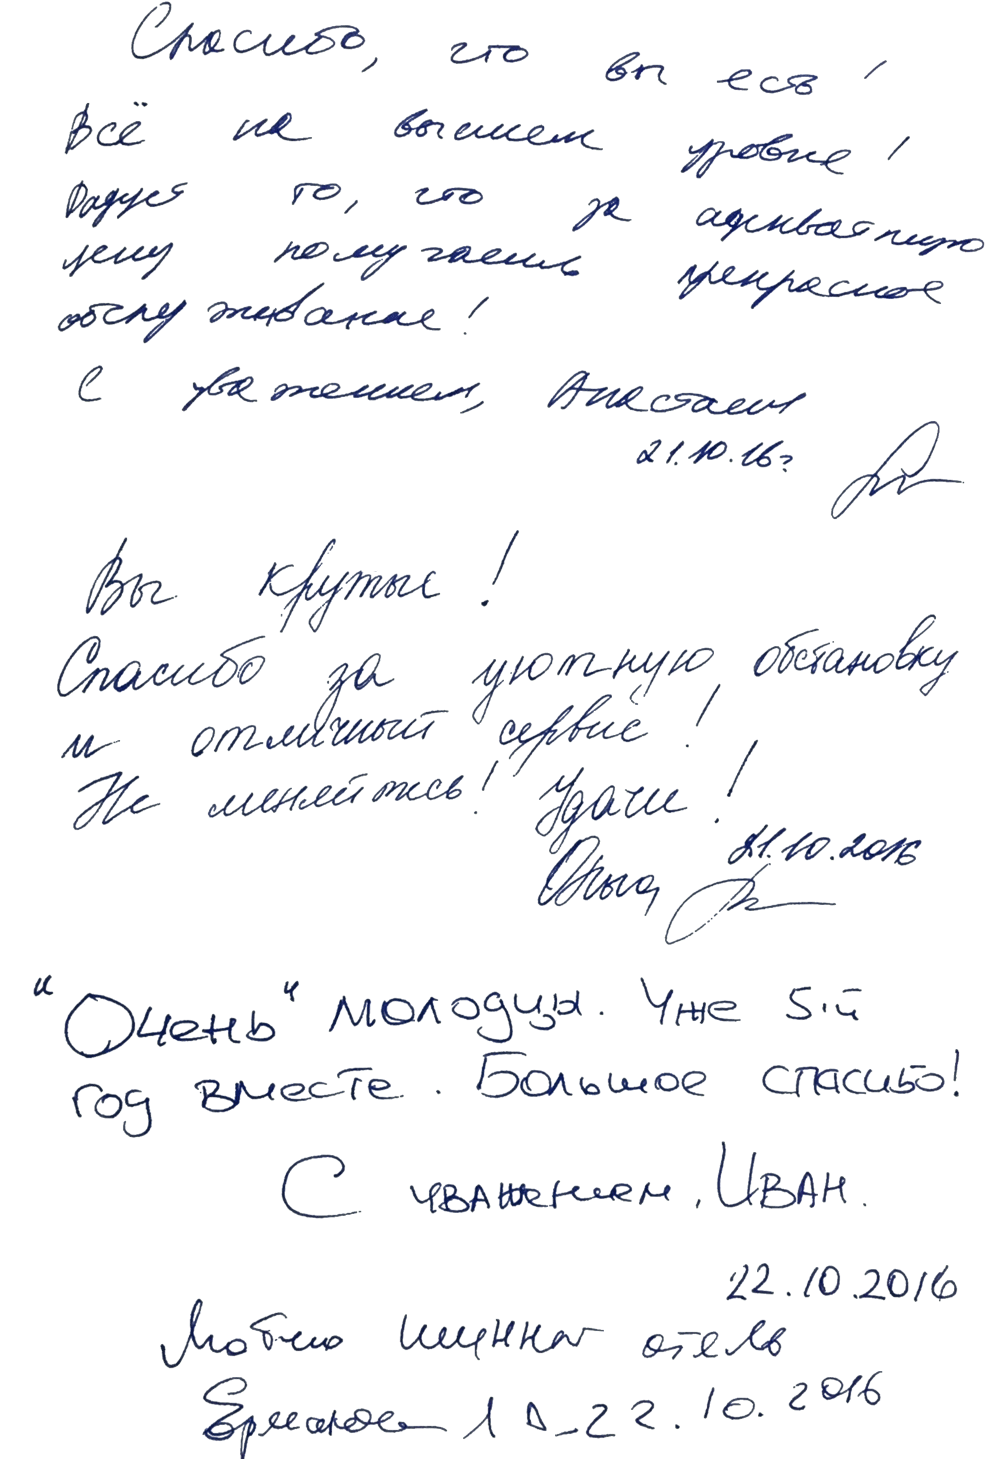 Спасибо, что вы есть!
Всё на высшем уровне!
Радует то, что за адекватную
цену получаешь прекрасное
обслуживание!
С уважением, Анастасия
21.10.16г
Вы крутые!
Спасибо за уютную обстановку
и отличный сервис!
Не меняйтесь! Удачи!
21.10.2016
Ольга,
"Очень" молодцы. Уже 5-й
год вместе. Большое спасибо!
С уважением, Иван.
22.10.2016
Люблю отель
22.10.2016